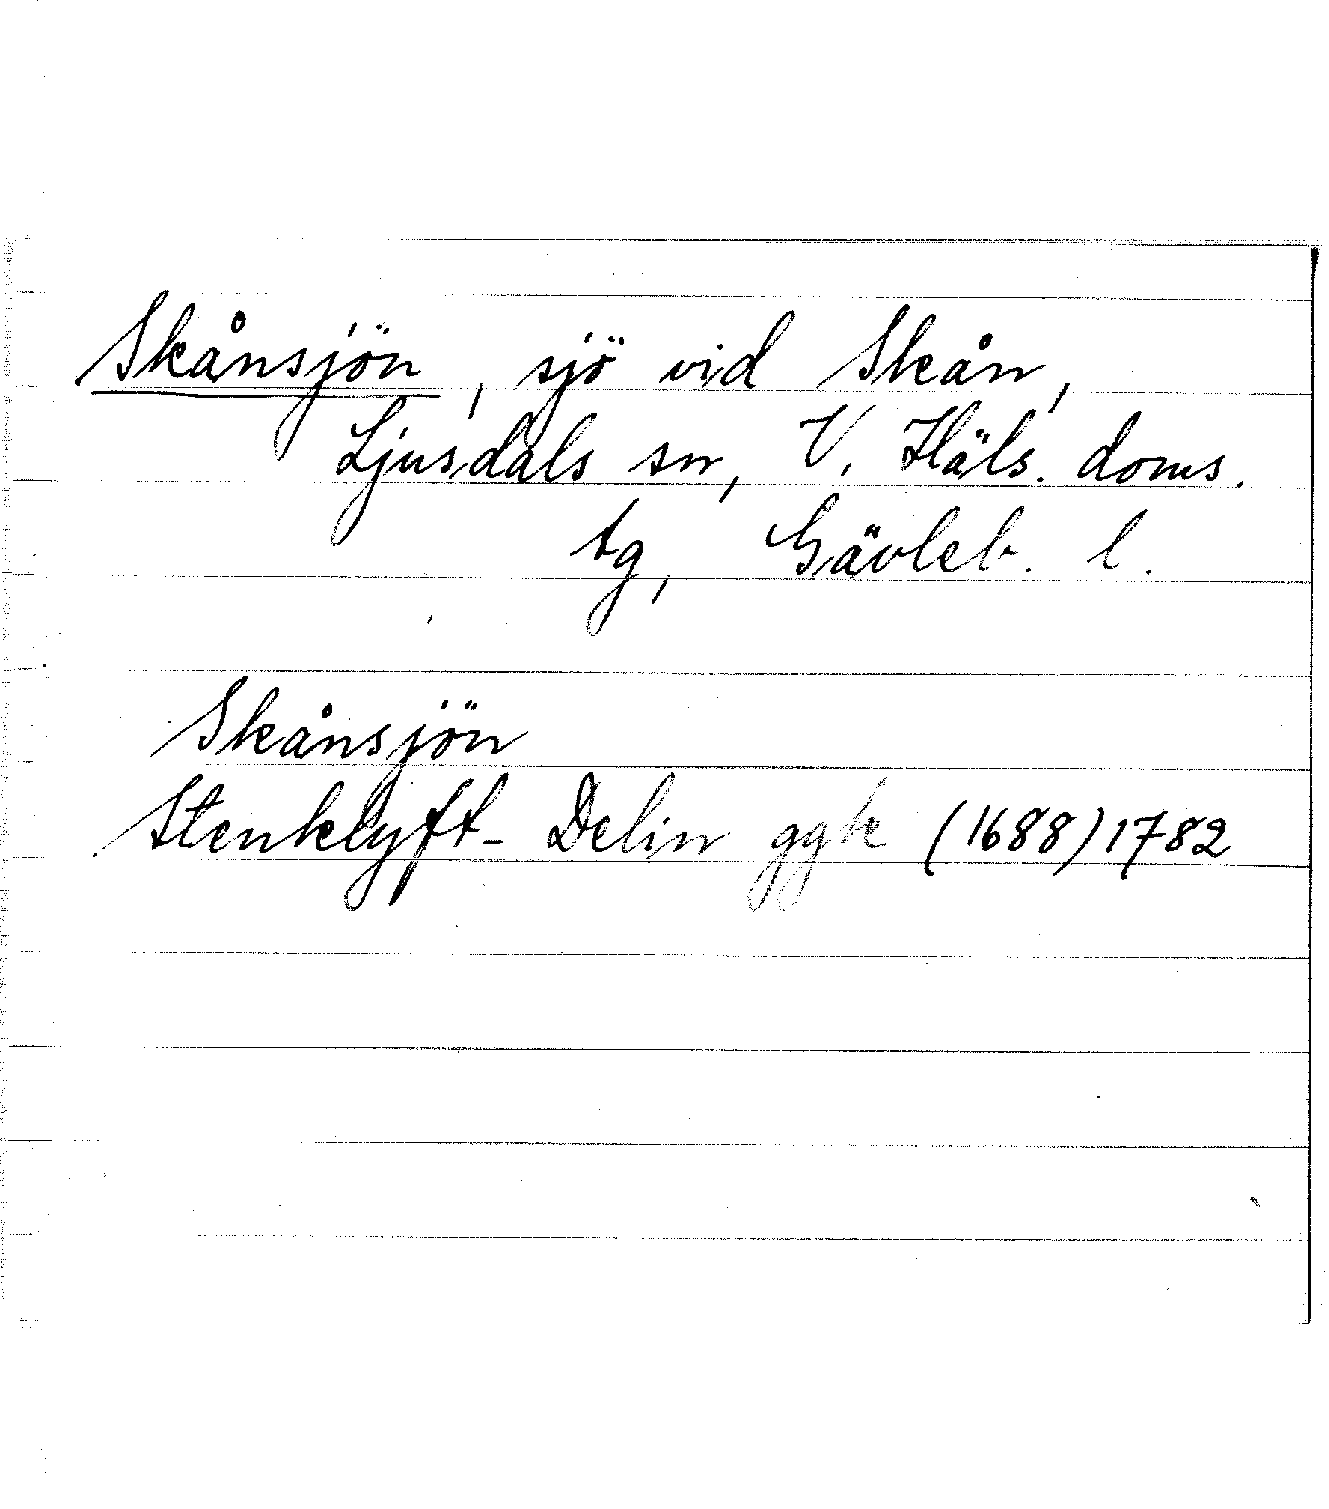 Skånsjön, sjö vid Skån,
Ljusdals sn, V. Häls. doms.
tg, Gävleb. l.
Skånsjön
Stenklyft- Delin ggk (1688) 1782